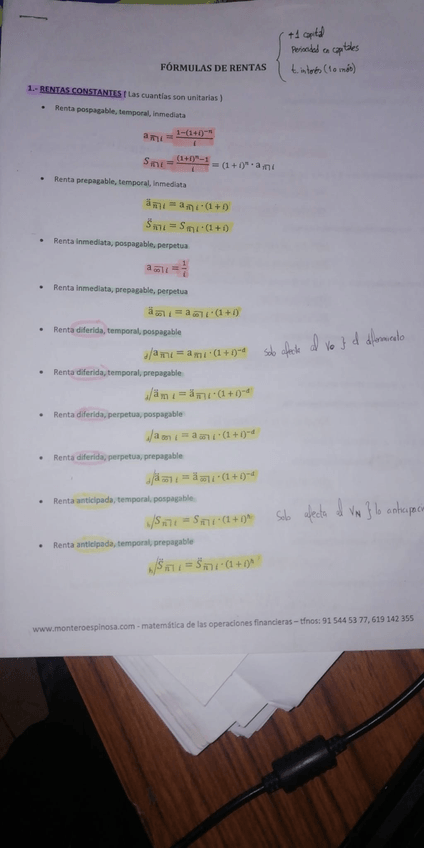 +1 capital
Periocidad en capitales
t. interés (1 o más)
FÓRMULAS DE RENTAS
1.- RENTAS CONSTANTES ( Las cuantías son unitarias )
• Renta pospagable, temporal, inmediata
a n̅| i = 1−(1+i)^−n / i
S n̅| i = (1+i)^n−1 / i = (1 + i)^n · a n̅| i
• Renta prepagable, temporal, inmediata
ä n̅| i = a n̅| i · (1 + i)
S̈ n̅| i = S n̅| i · (1 + i)
• Renta inmediata, pospagable, perpetua
a ∞̅| i = 1 / i
• Renta inmediata, prepagable, perpetua
ä ∞̅| i = a ∞̅| i · (1 + i)
• Renta diferida, temporal, pospagable
d/a n̅| i = a n̅| i · (1 + i)^−d Solo afecta al V0 } el diferimiento
• Renta diferida, temporal, prepagable
d/ä n̅| i = ä n̅| i · (1 + i)^−d
• Renta diferida, perpetua, pospagable
d/a ∞̅| i = a ∞̅| i · (1 + i)^−d
• Renta diferida, perpetua, prepagable
d/ä ∞̅| i = ä ∞̅| i · (1 + i)^−d
• Renta anticipada, temporal, pospagable
h/S n̅| i = S n̅| i · (1 + i)^h Solo afecta al VN } la
• Renta anticipada, temporal, prepagable
h/S̈ n̅| i = S̈ n̅| i · (1 + i)^h
www.monteroespinosa.com - matemática de las operaciones financieras – tfnos: 91 544 53 77, 619 142 355